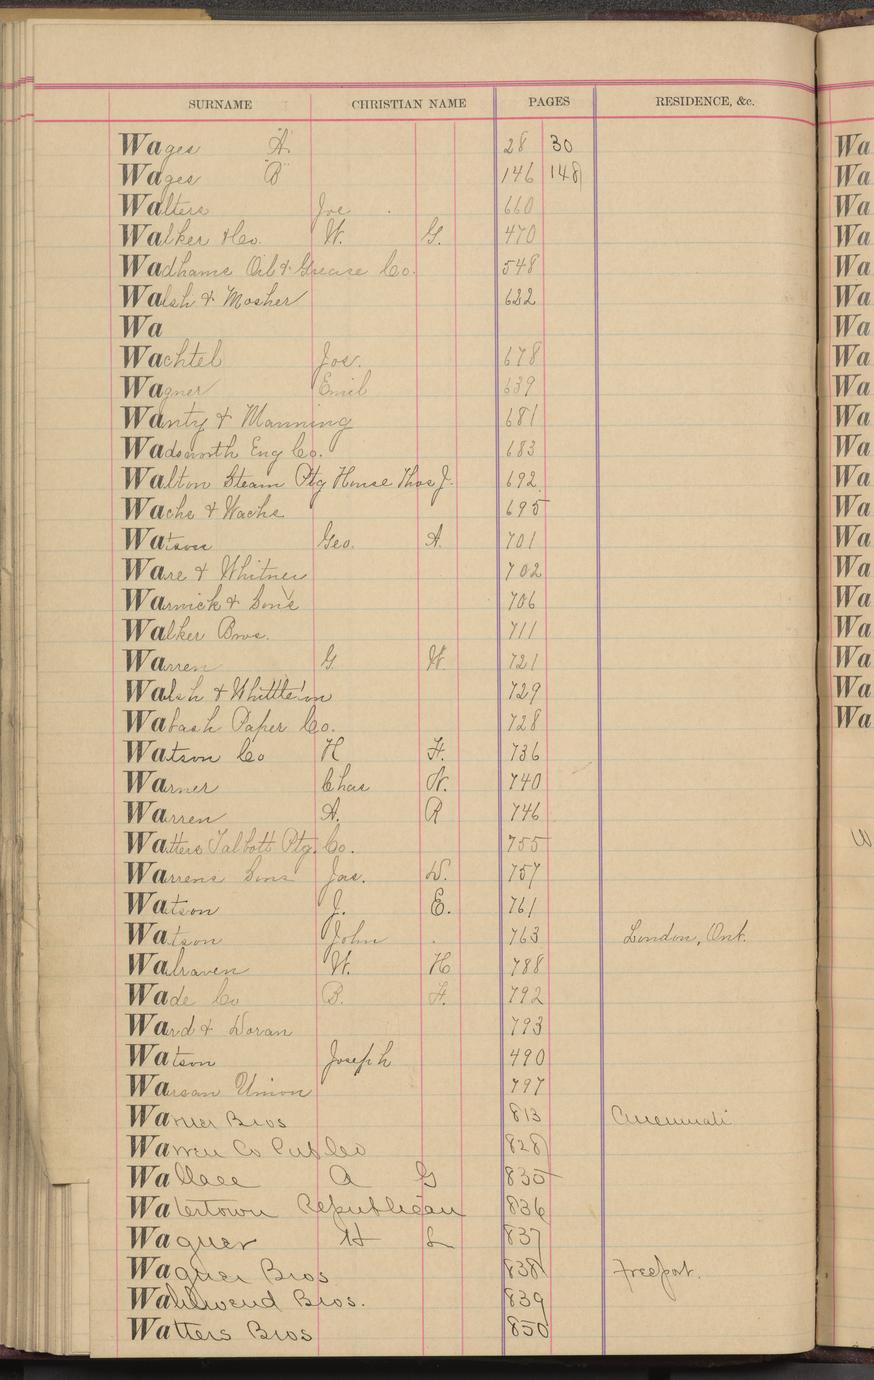 SURNAME CHRISTIAN NAME PAGES RESIDENCE, &c.
Wages "A" 28 30
Wages "B" 146 148
Walters Joe 660
Walker & Co. W. G. 470
Wadhams Oil & Grease Co. 548
Walsh & Mosher 632
Wa
Wachtel Jos. 678
Wagner Emil 639
Wanty & Manning 681
Wadsworth Eng Co. 683
Walton Steam Ptg House Thos J. 692
Wachs & Wachs 695
Watson Geo. A. 701
Ware & Whitner 702
Warnick & Sons 706
Walker Bros. 711
Warren G. W. 721
Walsh & 729
Wabash Paper Co. 728
Watson Co H F. 736
Warner Chas W. 740
Warren A. R 746
Watters Talbott Ptg. Co. 755
Warrens Sons Jas. D. 757
Watson J. E. 761
Watson John 763 London, Ont.
Walraven W. H 788
Wade Co B. F. 792
Ward & Doran 793
Watson Joseph 490
Warsaw Union 797
Warner Bros 813 Cincinnati
Warren Co Pub Co 828
Wallace A G 835
Watertown Republican 836
Wagner H L 837
Wagner Bros 838 Freeport.
Wahlwend Bros. 839
Watters Bros 850
Wa
Wa
Wa
Wa
Wa
Wa
Wa
Wa
Wa
Wa
Wa
Wa
Wa
Wa
Wa
Wa
Wa
Wa
Wa
Wa
W